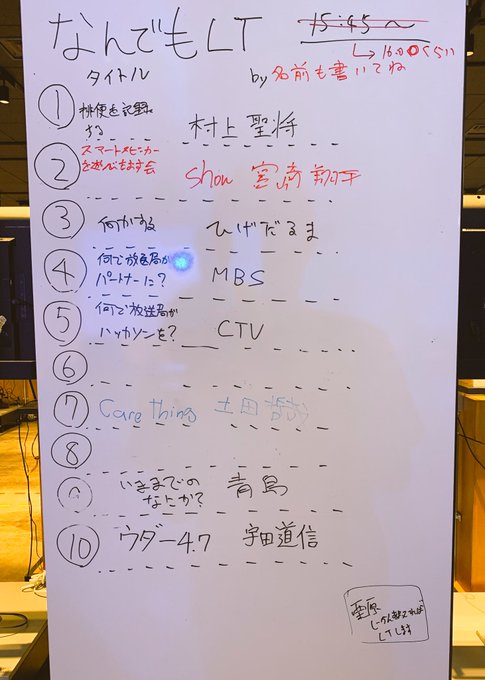 なんでもLT
15:45〜
↳16:00くらい
タイトル
by 名前も書いてね
① 排便を記録
する
村上 聖将
② スマートスピーカー
を遊びたおす会
Shou 宮崎 翔平
③ 何かする ひげだるま
④ 何で放送局が
パートナーに? MBS
⑤ 何で放送局が
ハッカソンを? CTV
⑥
⑦ Care Thing 土田
⑧
⑨ いままでの
なとか? 青島
⑩ ウダー4.7 宇田道信
栗原
じかんあまれば
LTします